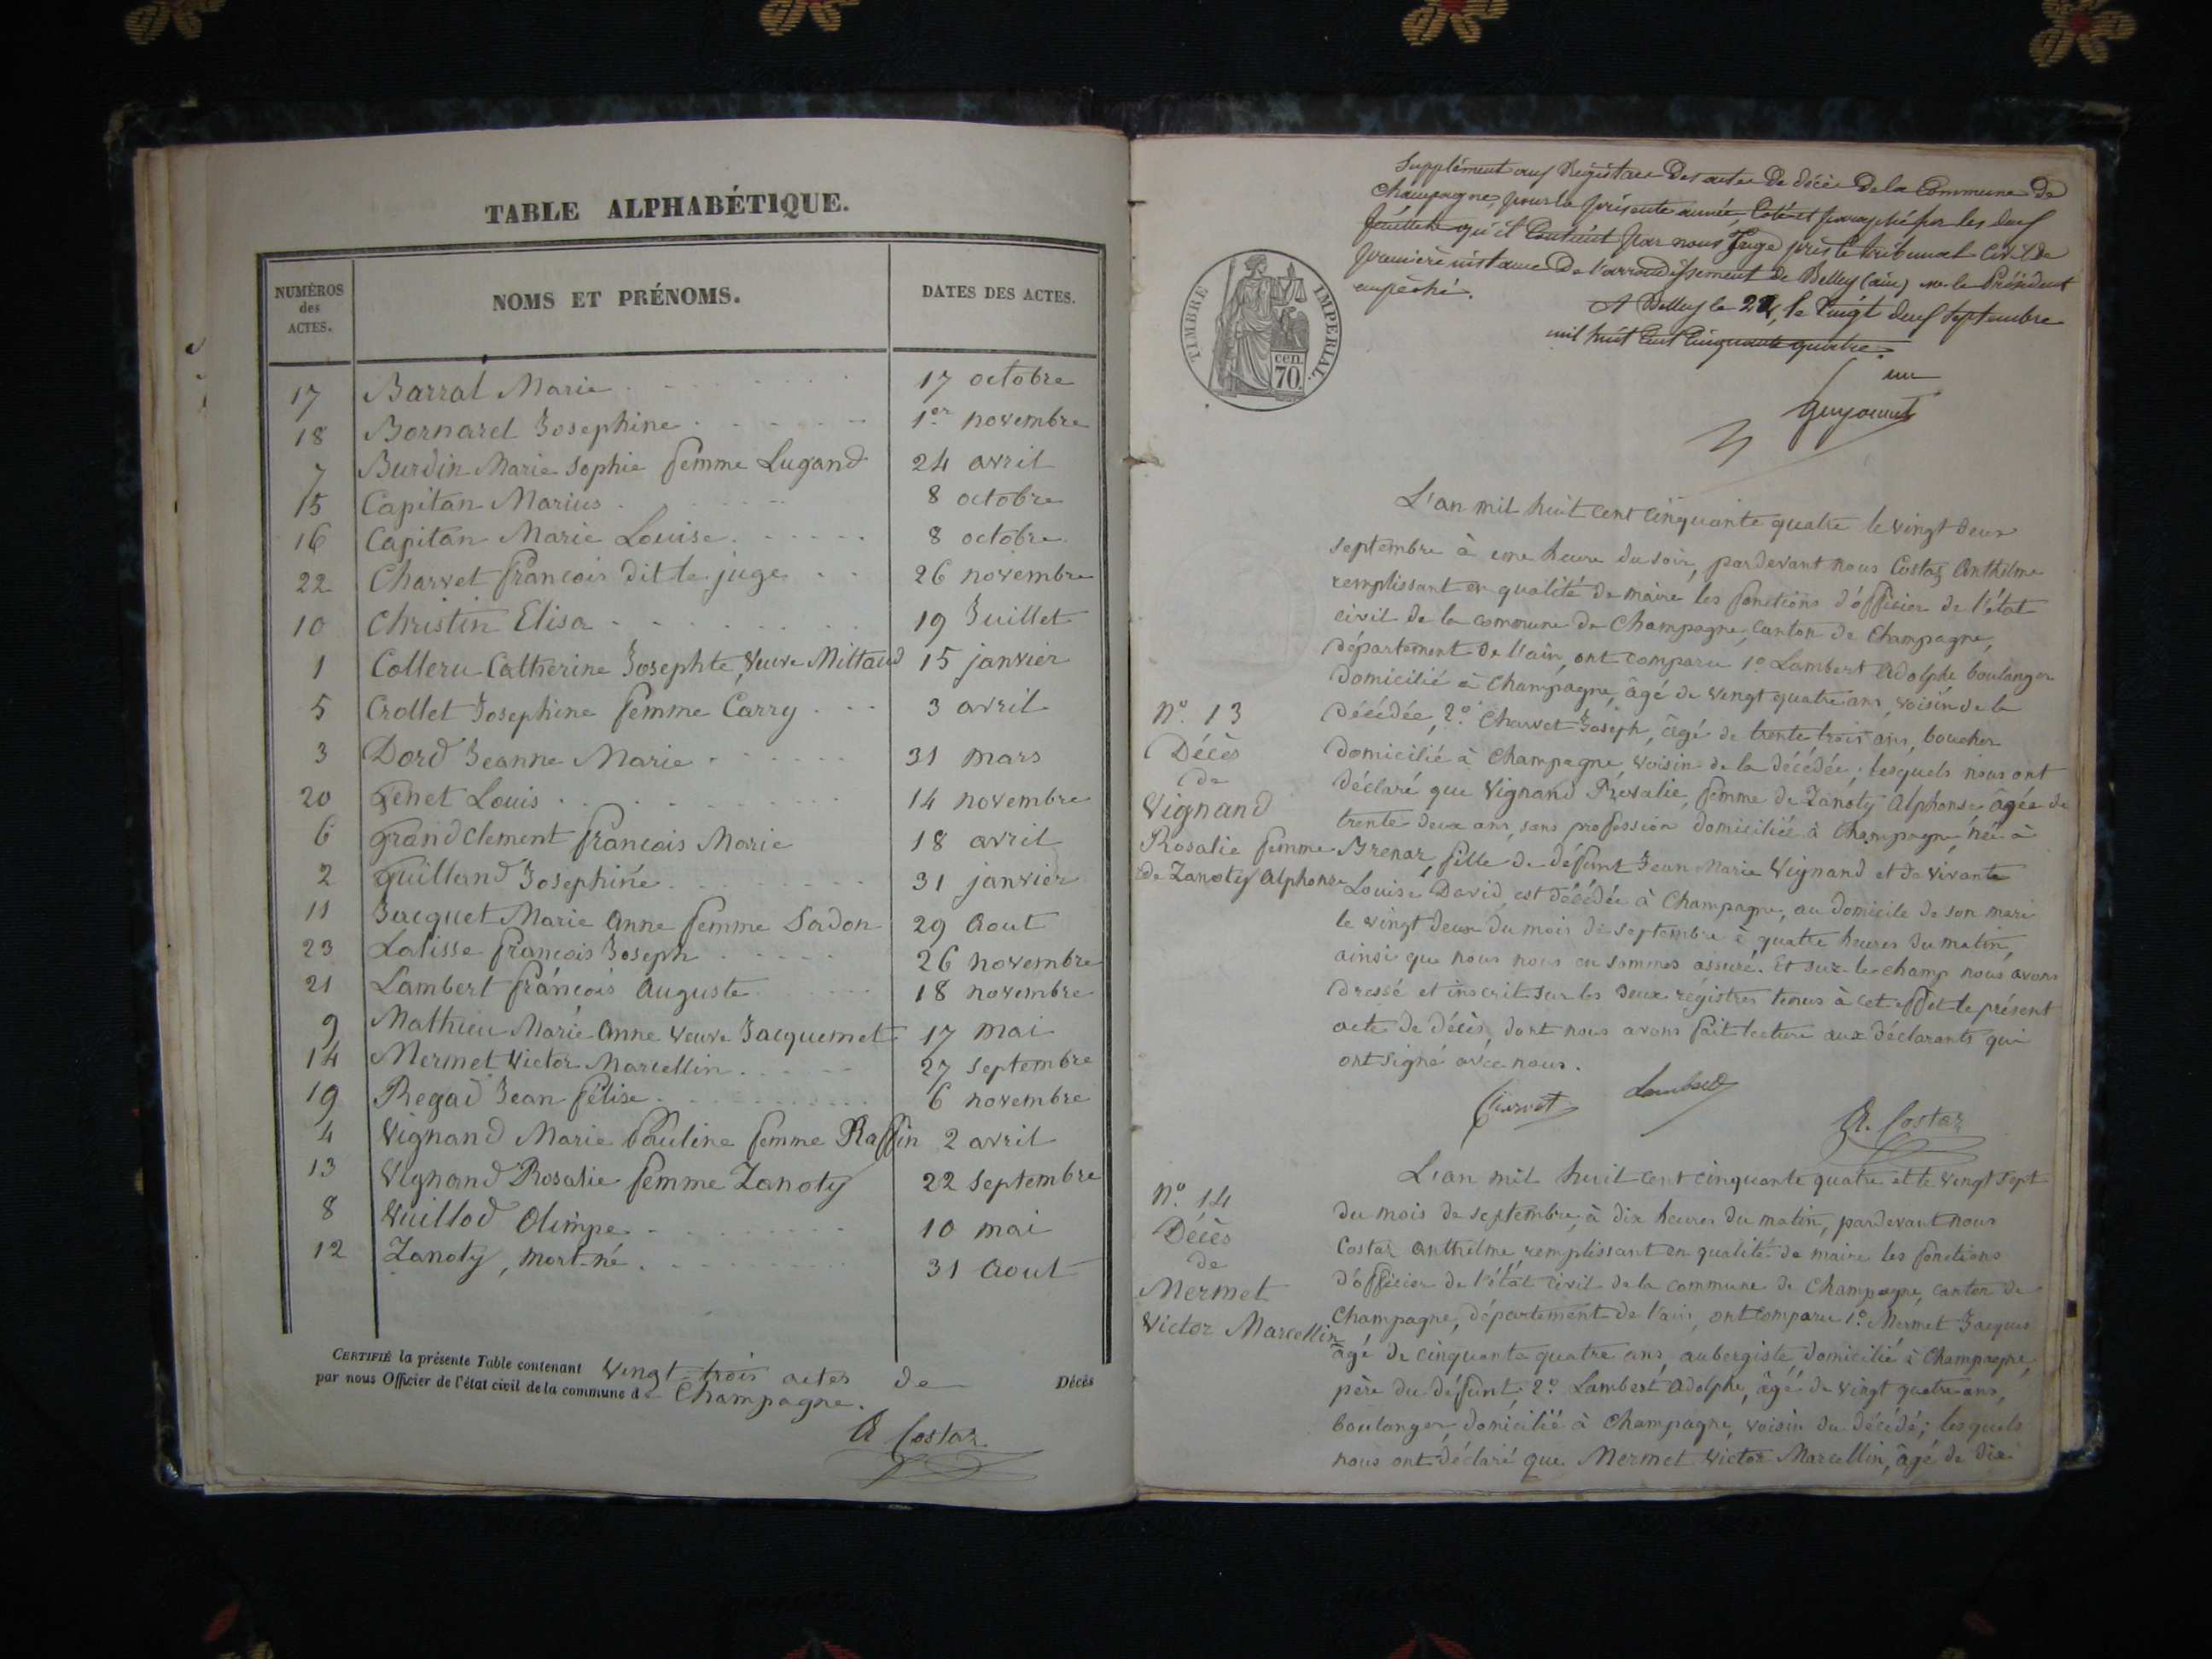 TABLE ALPHABÉTIQUE.
NUMÉROS des ACTES. NOMS ET PRÉNOMS. DATES DES ACTES.
17 Barral Marie 17 octobre
18 Bornarel Josephine 1er novembre
7 Burdin Marie Sophie femme Lugand 24 avril
15 Capitan Marius 8 octobre
16 Capitan Marie Louise 8 octobre
22 Charvet francois dit le juge 26 novembre
10 Christin Elisa 19 Juillet
1 Colleru Catherine Josephte, Veuve Mittaud 15 janvier
5 Crollet Josephine femme Carry 3 avril
3 Dord Jeanne Marie 31 mars
20 Genet Louis 14 novembre
6 Grandclement francois Marie 18 avril
2 Guilland Josephine 31 janvier
11 Jacquet Marie Anne femme Sadon 29 Aout
23 Latisse francois Joseph 26 novembre
21 Lambert francois Auguste 18 novembre
9 Mathieu Marie Anne veuve Jacquemet 17 mai
14 Mermet Victor Marcellin 27 septembre
19 Regad Jean félise 6 novembre
4 Vignand Marie Pauline femme Raffin 2 avril
13 Vignand Rosalie femme Zanoty 22 septembre
8 Vuillod Olimpe 10 mai
12 Zanoty, mort-né 31 Aout
CERTIFIÉ la présente Table contenant Vingt-trois actes de Décès
par nous Officier de l'état civil de la commune de Champagne.
A Costaz
Supplément aux Registres des actes de décès de la Commune de
Champagne, pour la présente année, Coté et paraphé par les deux
feuillets qu'il Contient par nous Juge près le tribunal Civil de
première instance de l'arrondissement de Belley (ain) M. le Président
empêché.
A Belley le 22, le Vingt deux Septembre
mil huit Cent Cinquante quatre.
TIMBRE IMPERIAL.
cen. 70.
L'an mil huit cent cinquante quatre le vingt deux
septembre à une heure du soir, pardevant nous Costaz Anthelme
remplissant en qualité de maire les fonctions d'officier de l'état
civil de la commune de Champagne, canton de Champagne,
département de l'ain, ont comparu 1º Lambert Adolphe boulanger
domicilié à Champagne, âgé de vingt quatre ans, voisin de la
décédée, 2º Charvet Joseph, âgé de trente trois ans, boucher
domicilié à Champagne, voisin de la décédée; lesquels nous ont
déclaré que Vignand Rosalie, femme de Zanoty Alphonse, âgée de
trente deux ans, sans profession domiciliée à Champagne, née à
Brenaz, fille de défunt Jean Marie Vignand et de vivante
Louise David, est décédée à Champagne, au domicile de son mari
le vingt deux du mois de septembre à quatre heures du matin,
ainsi que nous nous en sommes assuré. Et sur-le-champ nous avons
dressé et inscrit sur les deux régistres tenus à cet effet le présent
acte de décès, dont nous avons fait lecture aux déclarants qui
ont signé avec nous.
Nº. 13
Décès
de
Vignand
Rosalie femme
de Zanoty Alphonse
Charvet Lambert
A. Costaz
L'an mil huit cent cinquante quatre et le vingt sept
du mois de septembre, à dix heures du matin, pardevant nous
Costaz Anthelme, remplissant en qualité de maire les fonctions
d'officier de l'état civil de la commune de Champagne, canton de
Champagne, département de l'ain, ont comparu 1º Mermet Jacques
âgé de cinquante quatre ans, aubergiste, domicilié à Champagne,
père du défunt; 2º Lambert Adolphe, âgé de vingt quatre ans,
boulanger, domicilié à Champagne, voisin du décédé; lesquels
nous ont déclaré que Mermet Victor Marcellin, âgé de dix
Nº. 14
Décès
de
Mermet
Victor Marcellin